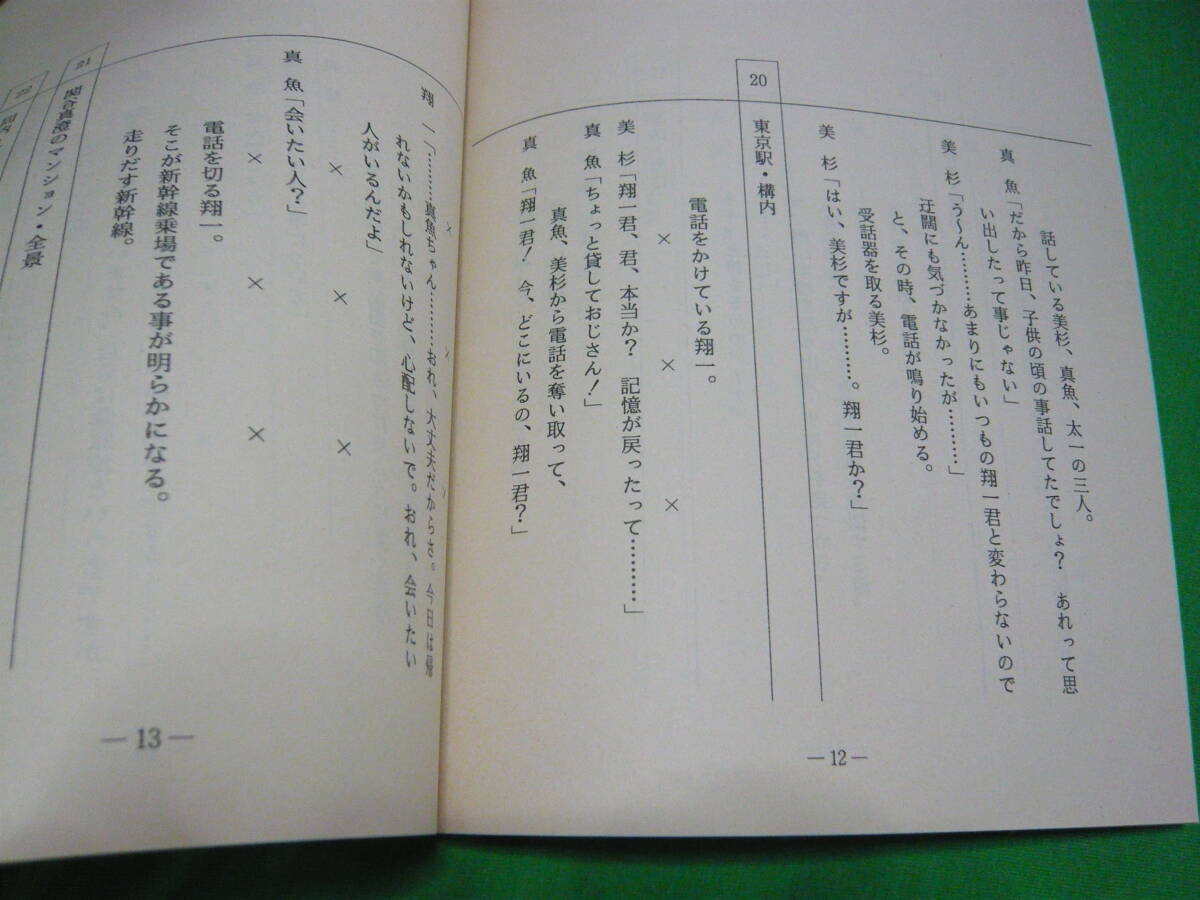 話している美杉、真魚、太一の三人。
真　魚「だから昨日、子供の頃の事話してたでしょ？　あれって思
い出したって事じゃない」
美　杉「う〜ん…………あまりにもいつもの翔一君と変わらないので
迂闊にも気づかなかったが…………」
と、その時、電話が鳴り始める。
受話器を取る美杉。
美　杉「はい、美杉ですが…………。翔一君か？」
20
東京駅・構内
電話をかけている翔一。
×　×　×
美　杉「翔一君、君、本当か？　記憶が戻ったって…………」
真　魚「ちょっと貸しておじさん！」
真魚、美杉から電話を奪い取って、
真　魚「翔一君！　今、どこにいるの、翔一君？」
—12—
×　×　×
翔　一「…………真魚ちゃん…………おれ、大丈夫だからさ。今日は帰
れないかもしれないけど、心配しないで。おれ、会いたい
人がいるんだよ」
×　×　×
真　魚「会いたい人？」
×　×　×
電話を切る翔一。
そこが新幹線乗場である事が明らかになる。
走りだす新幹線。
21
関谷真澄のマンション・全景
22
—13—